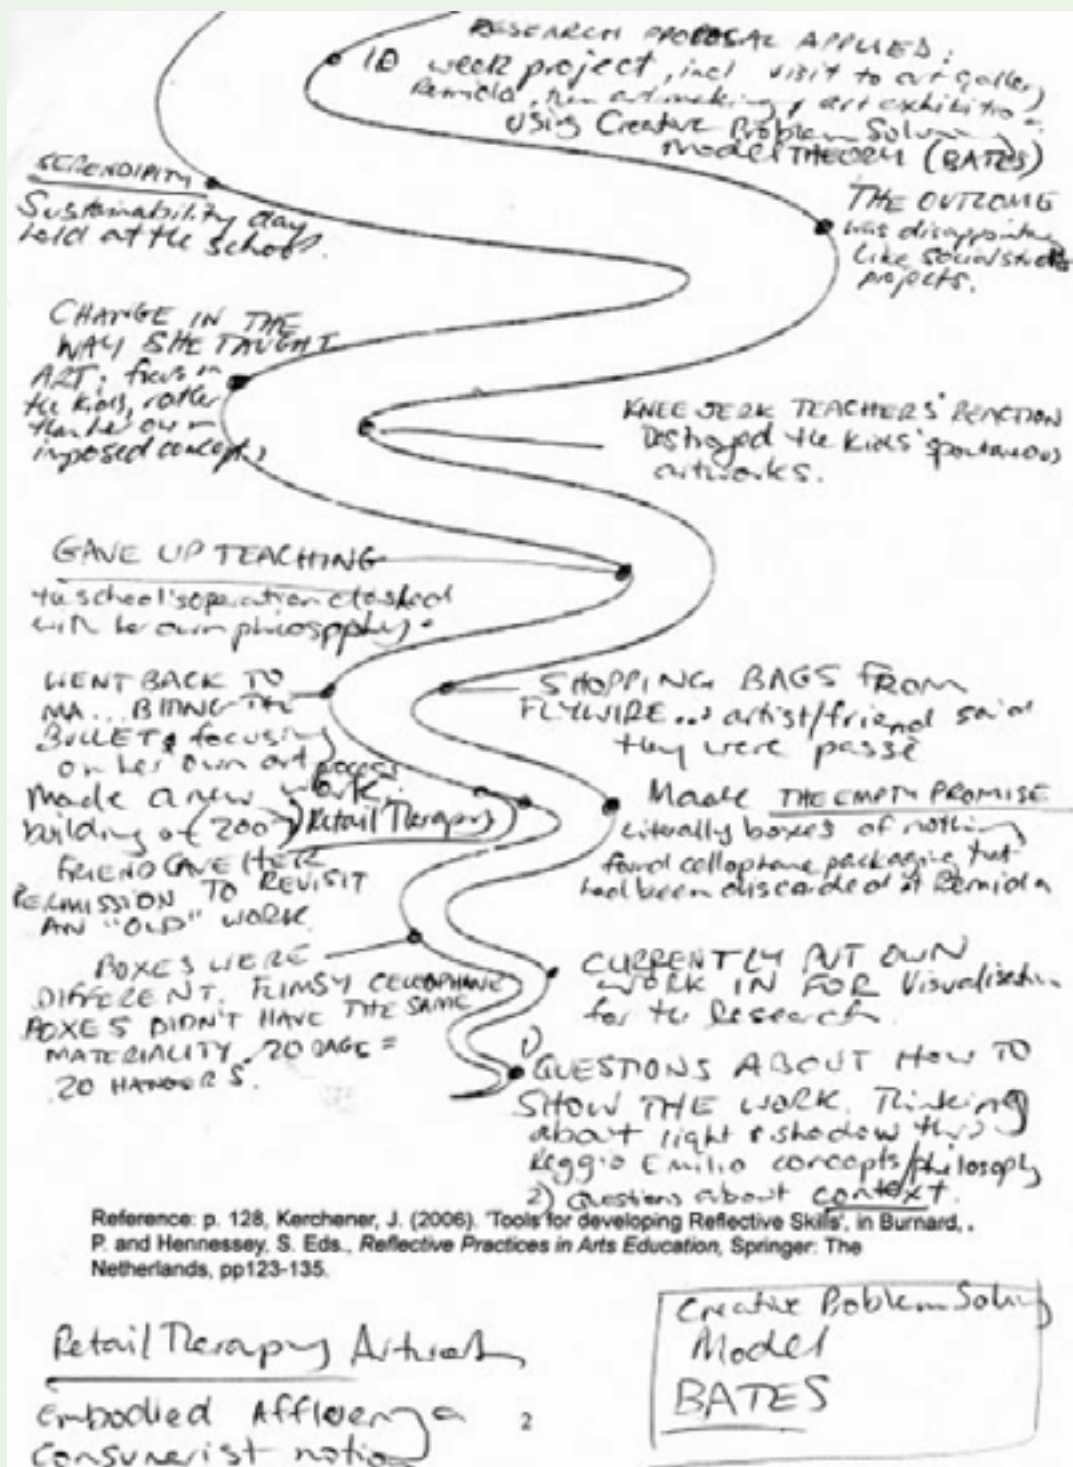 RESEARCH PROPOSAL APPLIED:
10 week project, incl visit to art gallery
Remida, then artmaking & art exhibition
using Creative Problem Solving
Model THEORY (BATES)
SERENDIPITY
Sustainability day
held at the school.
THE OUTCOME
was disappointing
like social studies
projects.
CHANGE IN THE
WAY SHE TAUGHT
ART: focus on
the kids, rather
than her own
imposed concepts
KNEE JERK TEACHERS' REACTION
Destroyed the kids' spontaneous
artworks.
GAVE UP TEACHING
the school's operation clashed
with her own philosophy.
WENT BACK TO
MA... BITING THE
BULLET & focusing
on her own art process
Made a new work.
building on (2007) Retail Therapy
FRIEND GAVE HER
PERMISSION TO REVISIT
AN "OLD" WORK.
SHOPPING BAGS FROM
FLYWIRE... artist/friend said
they were passé
Made THE EMPTY PROMISE
Literally boxes of nothing
found cellophane packaging that
had been discarded at Remida
BOXES WERE
DIFFERENT. FLIMSY CELLOPHANE
BOXES DIDN'T HAVE THE SAME
MATERIALITY. 20 BAGS =
20 HANGERS.
CURRENTLY PUT OWN
WORK IN FOR Visualisation
for the Research
1) QUESTIONS ABOUT HOW TO
SHOW THE WORK. Thinking
about light & shadow thru
Reggio Emilio concepts/philosophy
2) Questions about context.
Reference: p. 128, Kerchener, J. (2006). 'Tools for developing Reflective Skills', in Burnard, .
P. and Hennessey, S. Eds., Reflective Practices in Arts Education, Springer: The
Netherlands, pp123-135.
Retail Therapy Artwork
Embodied Affluenza
Consumerist notion
2
Creative Problem Solving
Model
BATES